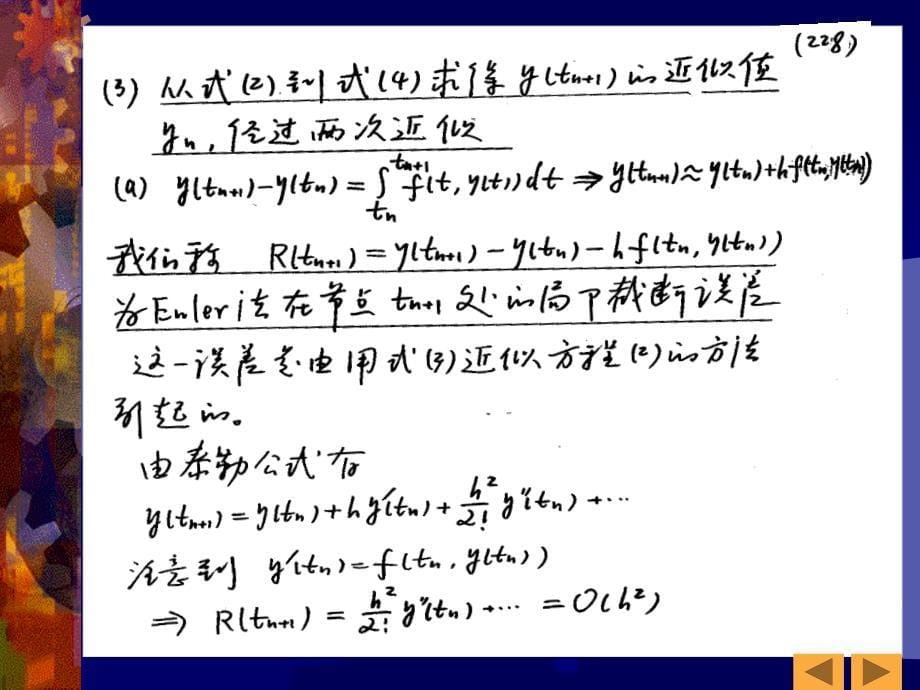 (228)
(3) 从式(2)到式(4)求得 y(tn+1) 的近似值
yn, 经过两次近似
(a) y(tn+1)-y(tn)=∫_{tn}^{tn+1} f(t,y(t))dt ⇒ y(tn+1)≈y(tn)+hf(tn,y(tn))
我们称 R(tn+1)=y(tn+1)-y(tn)-hf(tn,y(tn))
为Euler法在节点 tn+1 处的局部截断误差
这一误差是由用式(3)近似方程(2)的方法
引起的。
由泰勒公式有
y(tn+1)=y(tn)+hy'(tn)+\frac{h^2}{2!}y''(tn)+…
注意到 y'(tn)=f(tn,y(tn))
⇒ R(tn+1)=\frac{h^2}{2!}y''(tn)+…=O(h^2)